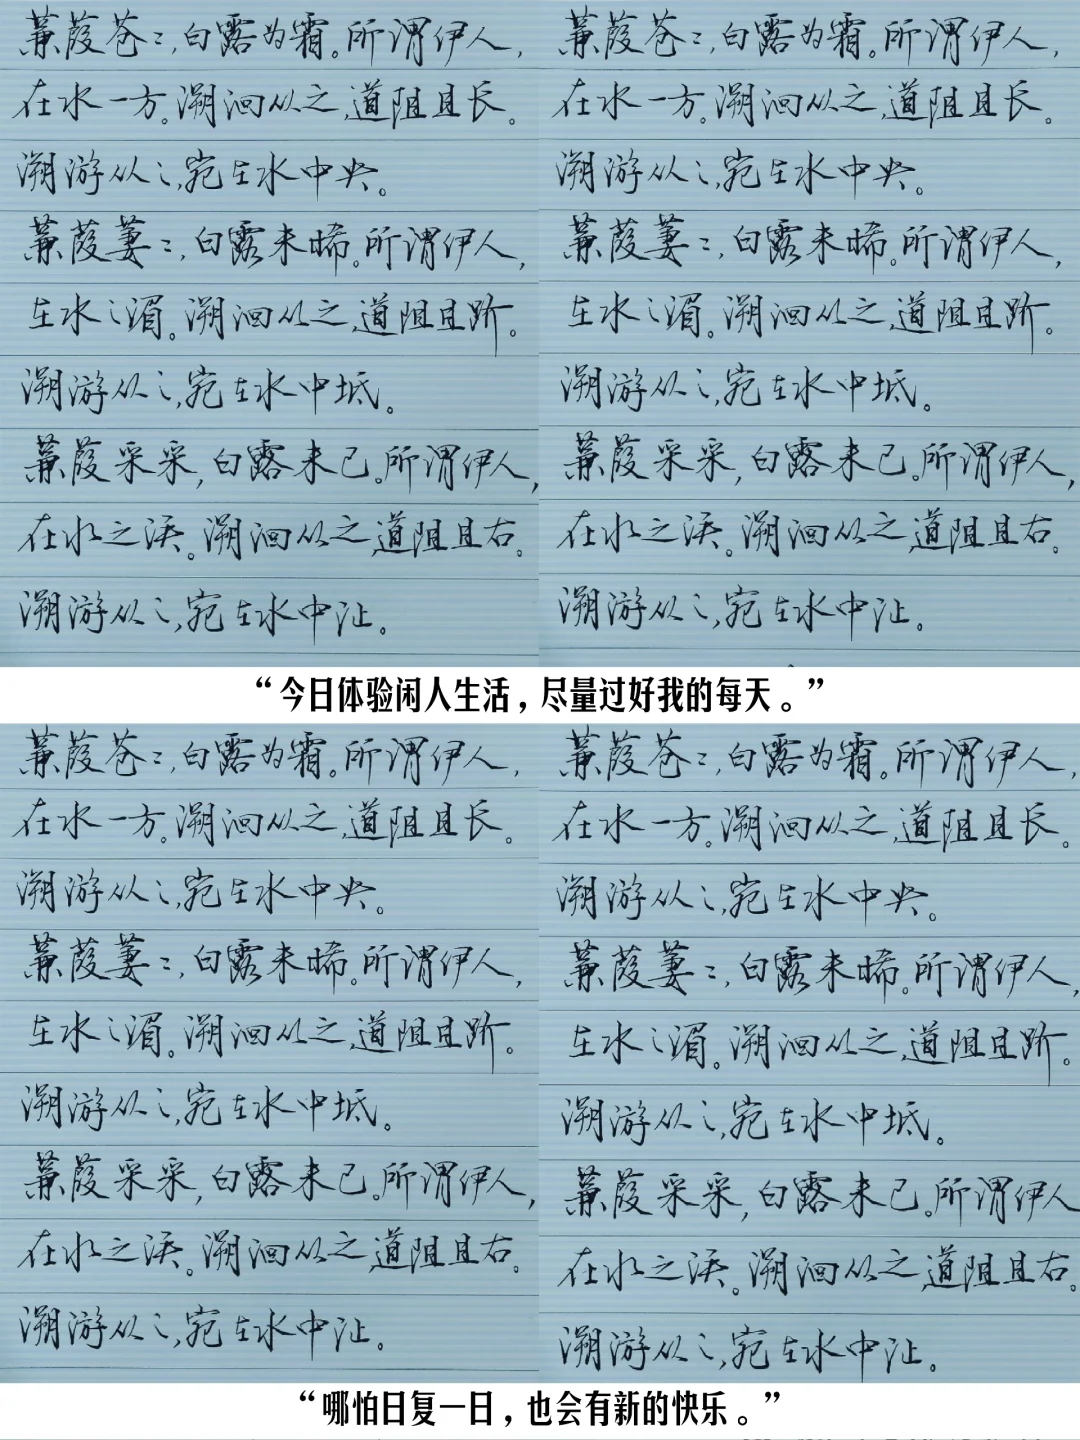 蒹葭苍〻,白露为霜。所谓伊人,
在水一方。溯洄从之,道阻且长。
溯游从之,宛在水中央。
蒹葭萋〻,白露未晞。所谓伊人,
在水之湄。溯洄从之,道阻且跻。
溯游从之,宛在水中坻。
蒹葭采采,白露未已。所谓伊人,
在水之涘。溯洄从之,道阻且右。
溯游从之,宛在水中沚。
蒹葭苍〻,白露为霜。所谓伊人,
在水一方。溯洄从之,道阻且长。
溯游从之,宛在水中央。
蒹葭萋〻,白露未晞。所谓伊人,
在水之湄。溯洄从之,道阻且跻。
溯游从之,宛在水中坻。
蒹葭采采,白露未已。所谓伊人,
在水之涘。溯洄从之,道阻且右。
溯游从之,宛在水中沚。
“今日体验闲人生活,尽量过好我的每天。”
蒹葭苍〻,白露为霜。所谓伊人,
在水一方。溯洄从之,道阻且长。
溯游从之,宛在水中央。
蒹葭萋〻,白露未晞。所谓伊人,
在水之湄。溯洄从之,道阻且跻。
溯游从之,宛在水中坻。
蒹葭采采,白露未已。所谓伊人,
在水之涘。溯洄从之,道阻且右。
溯游从之,宛在水中沚。
蒹葭苍〻,白露为霜。所谓伊人,
在水一方。溯洄从之,道阻且长。
溯游从之,宛在水中央。
蒹葭萋〻,白露未晞。所谓伊人,
在水之湄。溯洄从之,道阻且跻。
溯游从之,宛在水中坻。
蒹葭采采,白露未已。所谓伊人
在水之涘。溯洄从之,道阻且右。
溯游从之,宛在水中沚。
“哪怕日复一日,也会有新的快乐。”